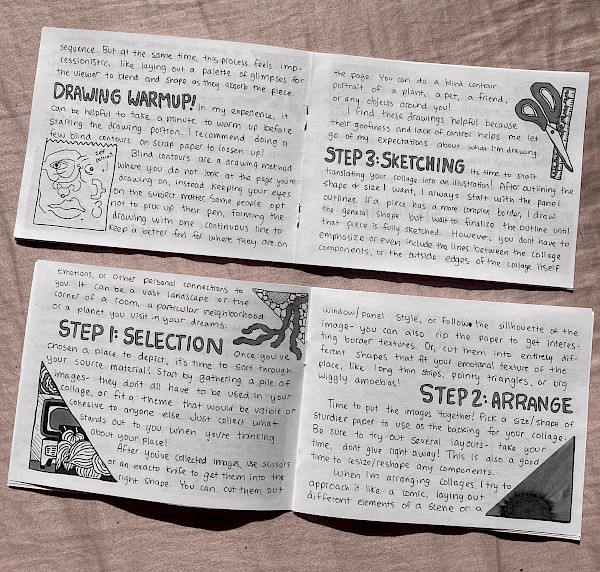 sequence. But at the same time, this process feels imp-
ressionistic, like laying out a palette of glimpses for
the viewer to blend and shape as they absorb the piece.
DRAWING WARMUP! In my experience, it
can be helpful to take a minute to warm up before
starting the drawing portion. I recommend doing a
few blind contours on scrap paper to loosen up!
Self Portrait
Blind contours are a drawing method
where you do not look at the page you're
drawing on, instead keeping your eyes
on the subject matter. Some people opt
not to pick up their pen, forming the
drawing with one continuous line to
keep a better feel for where they are on
the page. You can do a blind contour
portrait of a plant, a pet, a friend,
or any objects around you!
I find these drawings helpful because
their goofiness and lack of control helps me let
go of my expectations about what I'm drawing.
STEP 3: SKETCHING Its time to start
translating your collage into an illustration! After outlining the
shape & size I want, I always start with the panel
outlines. If a piece has a more complex border, I draw
the general shape but wait to finalize the outline until
that piece is fully sketched. However, you dont have to
emphasize or even include the lines between the collage
components, or the outside edges of the collage itself
emotions, or other personal connections to
you. It can be a vast landscape or the
corner of a room, a particular neighborhood
or a planet you visit in your dreams.
STEP 1: SELECTION Once you've
chosen a place to depict, it's time to sort through
your source material! Start by gathering a pile of
images- they don't all have to be used in your
collage, or fit a theme that would be visible or
cohesive to anyone else. Just collect what
stands out to you when you're thinking
about your place!
After you've collected images, use scissors
or an exacto knife to get them into the
right shape. You can cut them out
window/panel style, or follow the sillhouette of the
image- you can also rip the paper to get interes-
ting border textures. Or, cut them into entirely dif-
ferent shapes that fit your emotional texture of the
place, like long thin strips, pointy triangles, or big
wiggly amoebas!
STEP 2: ARRANGE
Time to put the images together! Pick a size/shape of
sturdier paper to use as the backing for your collage.
Be sure to try out several layouts- take your
time, dont give right away! This is also a good
time to resize/reshape any components.
When I'm arranging collages, I try to
approach it like a comic, laying out
different elements of a scene or a